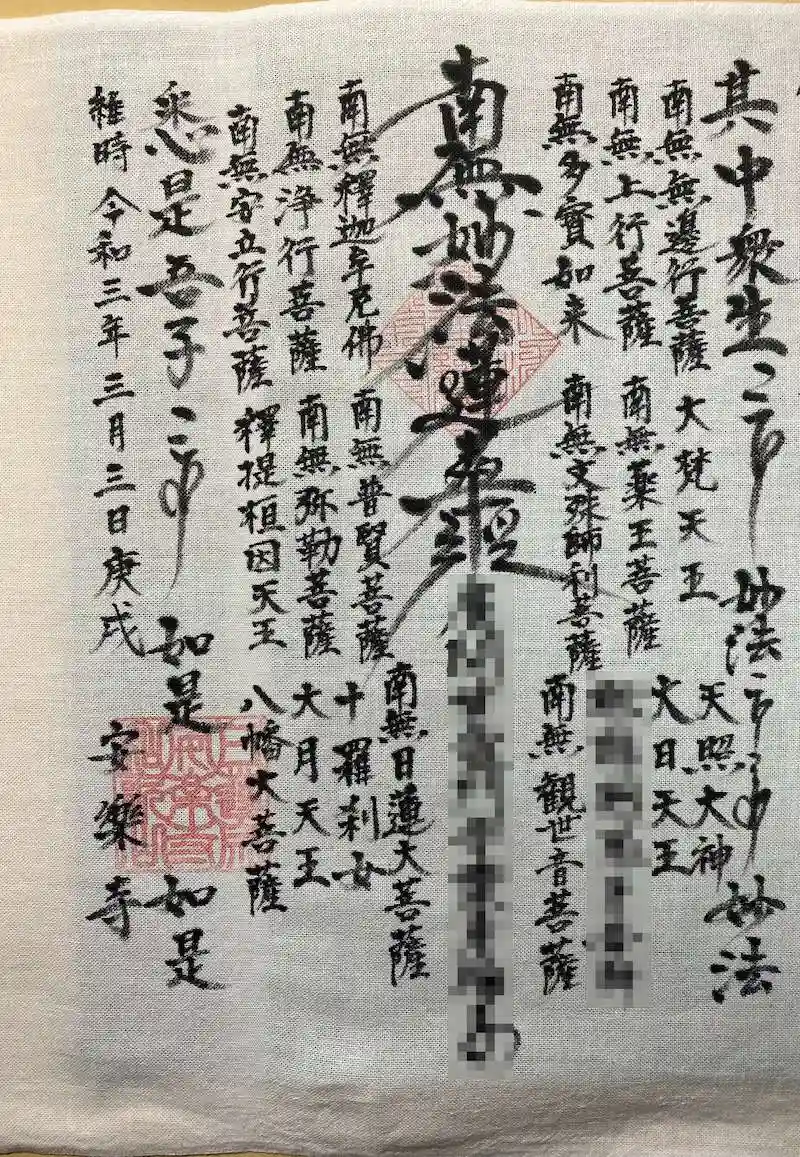 其中衆生
妙法
妙法
南無無邊行菩薩 大梵天王 天照大神
南無上行菩薩 南無薬王菩薩 大日天王
南無多寶如来 南無文殊師利菩薩 南無観世音菩薩
南無妙法蓮華経
南無釋迦牟尼佛 南無普賢菩薩 南無日蓮大菩薩
南無浄行菩薩 南無弥勒菩薩 十羅刹女
南無安立行菩薩 釋提桓因天王 大月天王
八幡大菩薩
悉是吾子
如是
如是
維時 令和三年 三月三日庚戌 安樂寺